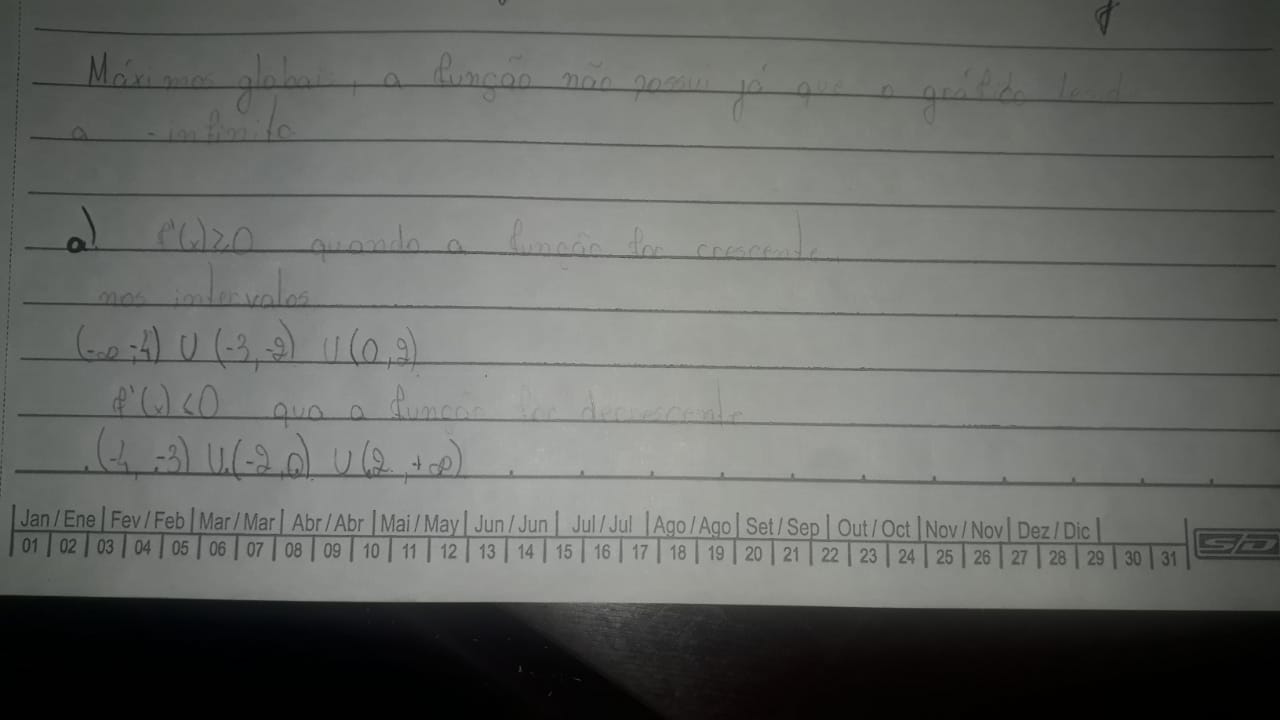 Máximos globais, a função não possui já que o gráfico tende
a -infinito
a) f'(x)≥0 quando a função for crescente
nos intervalos
(-∞,-4) U (-3,-2) U (0,2)
f'(x)<0 qua a função for decrescente
(-4,-3) U (-2,0) U (2,+∞)
Jan/Ene Fev/Feb Mar/Mar Abr/Abr Mai/May Jun/Jun Jul/Jul Ago/Ago Set/Sep Out/Oct Nov/Nov Dez/Dic
01 02 03 04 05 06 07 08 09 10 11 12 13 14 15 16 17 18 19 20 21 22 23 24 25 26 27 28 29 30 31
SD